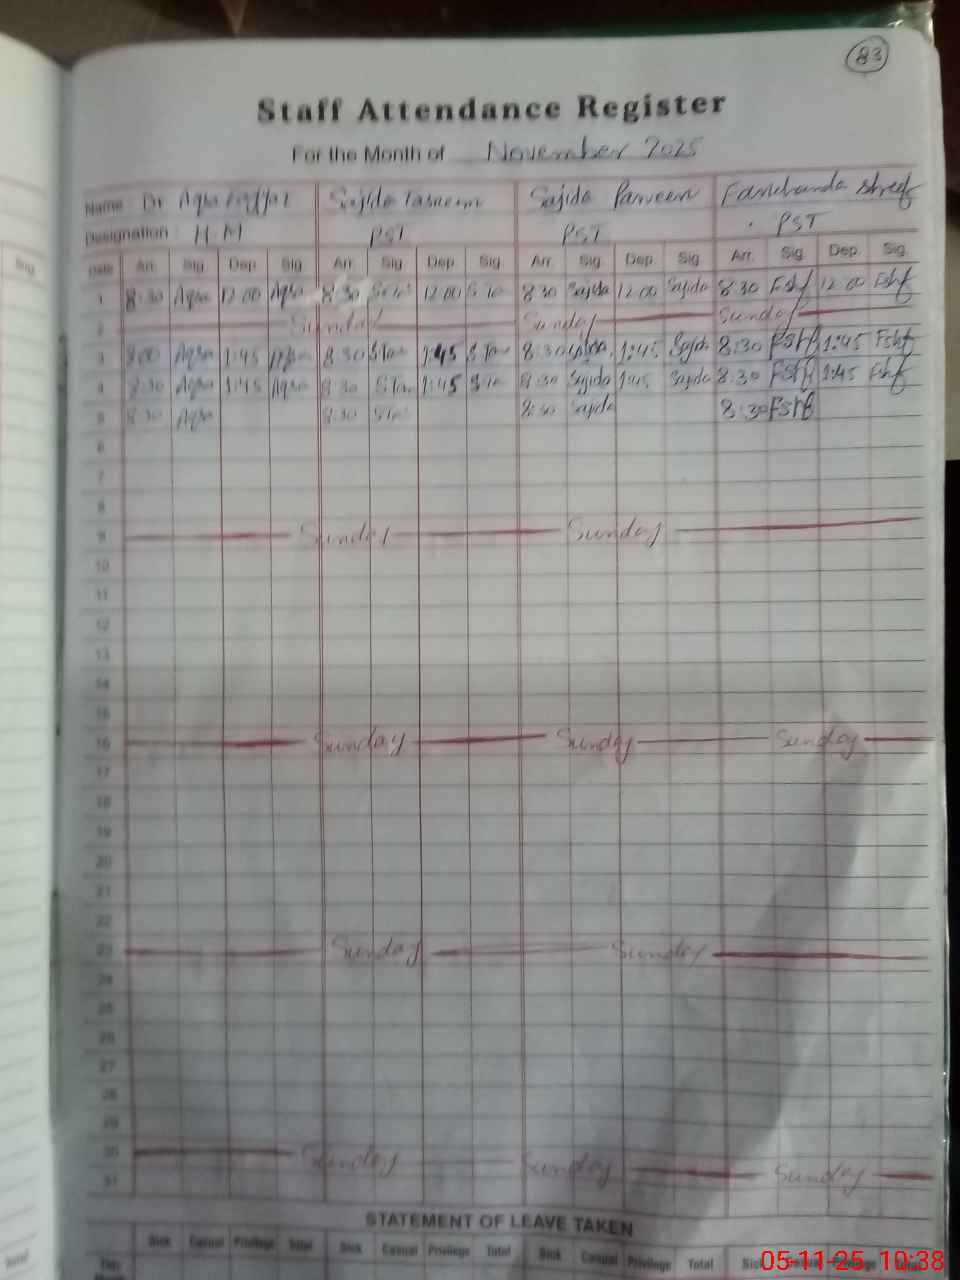 83
Staff Attendance Register
For the Month of November 2025
Name : Dr Aqsa Sajida Tasneem Sajida Parveen Farkhanda
Designation : H M PST PST PST
Sig
Date Arr. Sig Dep. Sig Arr. Sig Dep. Sig Arr. Sig. Dep. Sig Arr. Sig. Dep. Sig.
1 8:30 Aqsa 12 00 Aqsa 8:30 12 00 8 30 Sajida 12 00 Sajida 8 30 12 00
2 Sunday Sunday Sunday
3 Aqsa 1:45 Aqsa 8:30 S Tas 1:45 S Tas 8:30 1:45 Sajida 8:30 1:45
4 8:30 Aqsa 1:45 Aqsa 8:30 S Tas 1:45 S Tas 8:30 Sajida 1:45 Sajida 8:30 1:45
5 8:30 Aqsa 8:30 8:30 Sajida 8:30
6
7
8
9 Sunday Sunday
10
11
12
13
14
15
16 Sunday Sunday Sunday
17
18
19
20
21
22
23 Sunday Sunday
24
25
26
27
28
29
30 Sunday Sunday Sunday
31
STATEMENT OF LEAVE TAKEN
Sick Casual Privilege Total Sick Casual Privilege Total Sick Casual Privilege Total Sick Casual Privilege Total
This
05-11-25 10:38